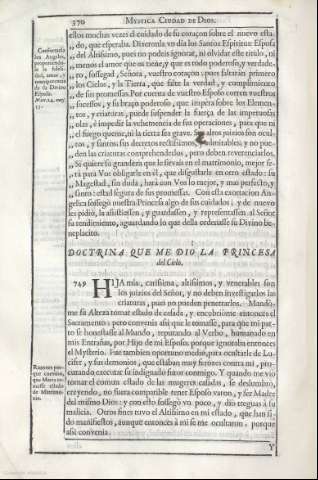 370 MYSTICA CIUDAD DE DIOS.
ellos muchas vezes el cuidado de su coraçon sobre el nuevo esta-
do, que esperaba. Dixeronla vn dia los Santos Espiritus: Esposa
del Altissimo, pues no podeis ignorar, ni olvidar este titulo, ni
menos el amor que os tiene, y que es todo poderoso, y verdade-
ro, sossegad, Señora, vuestro coraçon; pues faltarán primero
los Cielos, y la Tierra, que falte la verdad, y cumplimiento
de sus promessas. Por cuenta de vuestro Esposo corren vuestros
sucessos, y su braço poderoso, que impera sobre los Elemen-
tos, y criaturas, puede suspender la fuerça de las impetuosas
olas, é impedir la vehemencia de sus operaciones, para que ni
el fuego queme, ni la tierra sea grave. Sus altos juizios son ocul-
tos, y santos; sus decretos rectissimos, y admirables; y no pue-
den las criaturas comprehenderlos, pero deben reverenciarlos.
Si quiere su grandeza que le sirvais en el matrimonio, mejor se-
rá para Vos obligarle en él, que disgustarle en otro estado: su
Magestad, sin duda, hará con Vos lo mejor, y mas perfecto, y
santo: estad segura de sus promessas. Con esta exortacion An-
gelica sossegó nuestra Princesa algo de sus cuidados; y de nuevo
les pidió, la assistiessen, y guardassen, y representassen al Señor
su rendimiento, aguardando lo que della ordenasse su Divino be-
neplacito.
Confortanla
los Angeles,
DOCTRINA QUE ME DIO LA PRINCESA
del Cielo.
749 HIJA mia, carissima, altissimos, y venerables son
los juizios del Señor, y no deben investigarlos las
criaturas, pues no pueden penetrarlos. Mandó-
me su Alteza tomar estado de casada, y encubrióme entonces el
Sacramento; pero convenia assi que le tomasse, para que mi par-
to se honestasse al Mundo, reputando al Verbo, humanado en
mis Entrañas, por Hijo de mi Esposo; porque ignoraba entonces
el Mysterio. Fue tambien oportuno medio, para ocultarle de Lu-
cifer, y sus demonios, que estaban muy furiosos contra mi, pro-
curando executar su indignado furor conmigo. Y quando me vió
tomar el comun estado de las mugeres casadas, se deslumbró,
creyendo, no fuera compatible tener Esposo varon, y ser Madre
del mismo Dios: y con esto sossegó vn poco, y dió treguas á su
malicia. Otros fines tuvo el Altissimo en mi estado, que han si-
do manifiestos, aunque entonces á mi se me ocultaron, porque
assi convenia.
Y